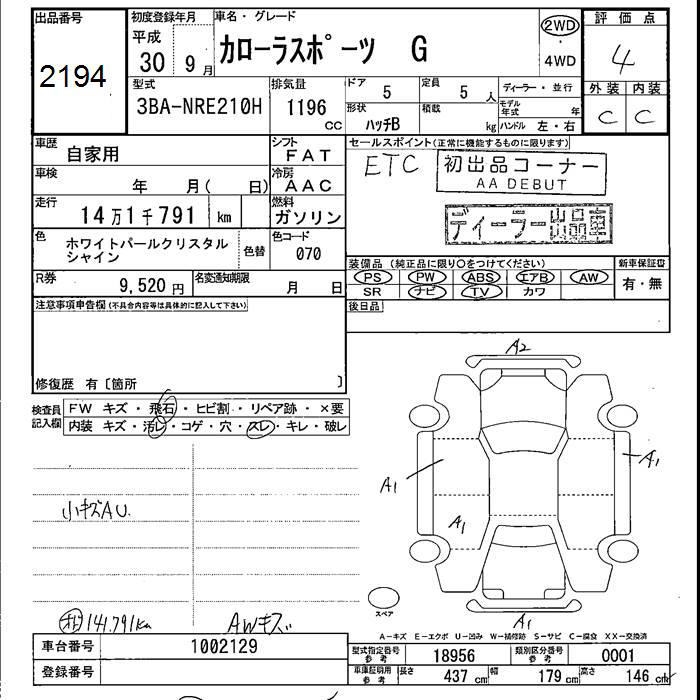 出品番号
2194
初度登録年月
平成
30 9月
車名・グレード
カローラスポーツ G
2WD
・
4WD
評価点
4
外装 内装
C C
型式
3BA-NRE210H
排気量
1196
CC
ドア 5
定員 5 人
形状 ハッチB
積載 kg
ディーラー・並行
モデル年式 年
ハンドル 左・右
車歴 自家用
シフト FAT
車検 年 月( 日)
冷房 AAC
走行 14万1千791 km
燃料 ガソリン
色 ホワイトパールクリスタル
シャイン
色替
色コード
070
R券 9,520円
名変通知期限 月 日
セールスポイント(正常に機能するものに限ります)
ETC
初出品コーナー
AA DEBUT
ディーラー出品車
装備品 (純正品に限り○をつけてください)
PS PW ABS エアB AW
SR ナビ TV カワ
新車保証書
有・無
後日品
注意事項申告欄(不具合内容等は具体的に記入して下さい)
修復歴 有〔箇所 〕
検査員
記入欄
FW キズ・飛石・ヒビ割・リペア跡・×要
内装 キズ・汚レ・コゲ・穴・スレ・キレ・破レ
小キズAU.
141.791km
AWキズ
A2
A1
A1
A1
A1
スペア
A-キズ E-エクボ U-凹み W-補修跡 S-サビ C-腐食 XX-交換済
車台番号 1002129
登録番号
型式指定番号
参考
18956
類別区分番号
参考
0001
車庫証明用
参考
長さ 437 cm
幅 179 cm
高さ 146 cm